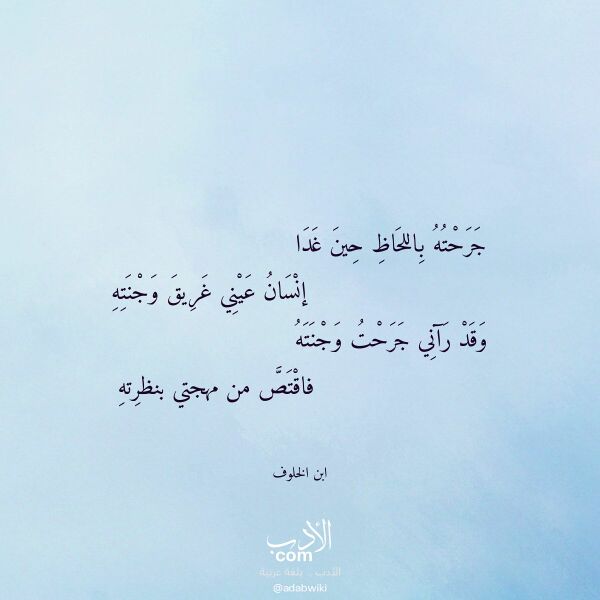 جَرَحْتُهُ بِاللحَاظِ حِينَ غَدَا
إنْسَانُ عَيْنِي غَرِيقَ وَجْنَتِهِ
وَقَدْ رَآنِي جَرَحْتُ وَجْنَتَهُ
فاقْتَصَّ من مهجتي بنظرِتهِ
ابن الخلوف
الأدب
com
الأدب .. بلغة عربية
@adabwiki